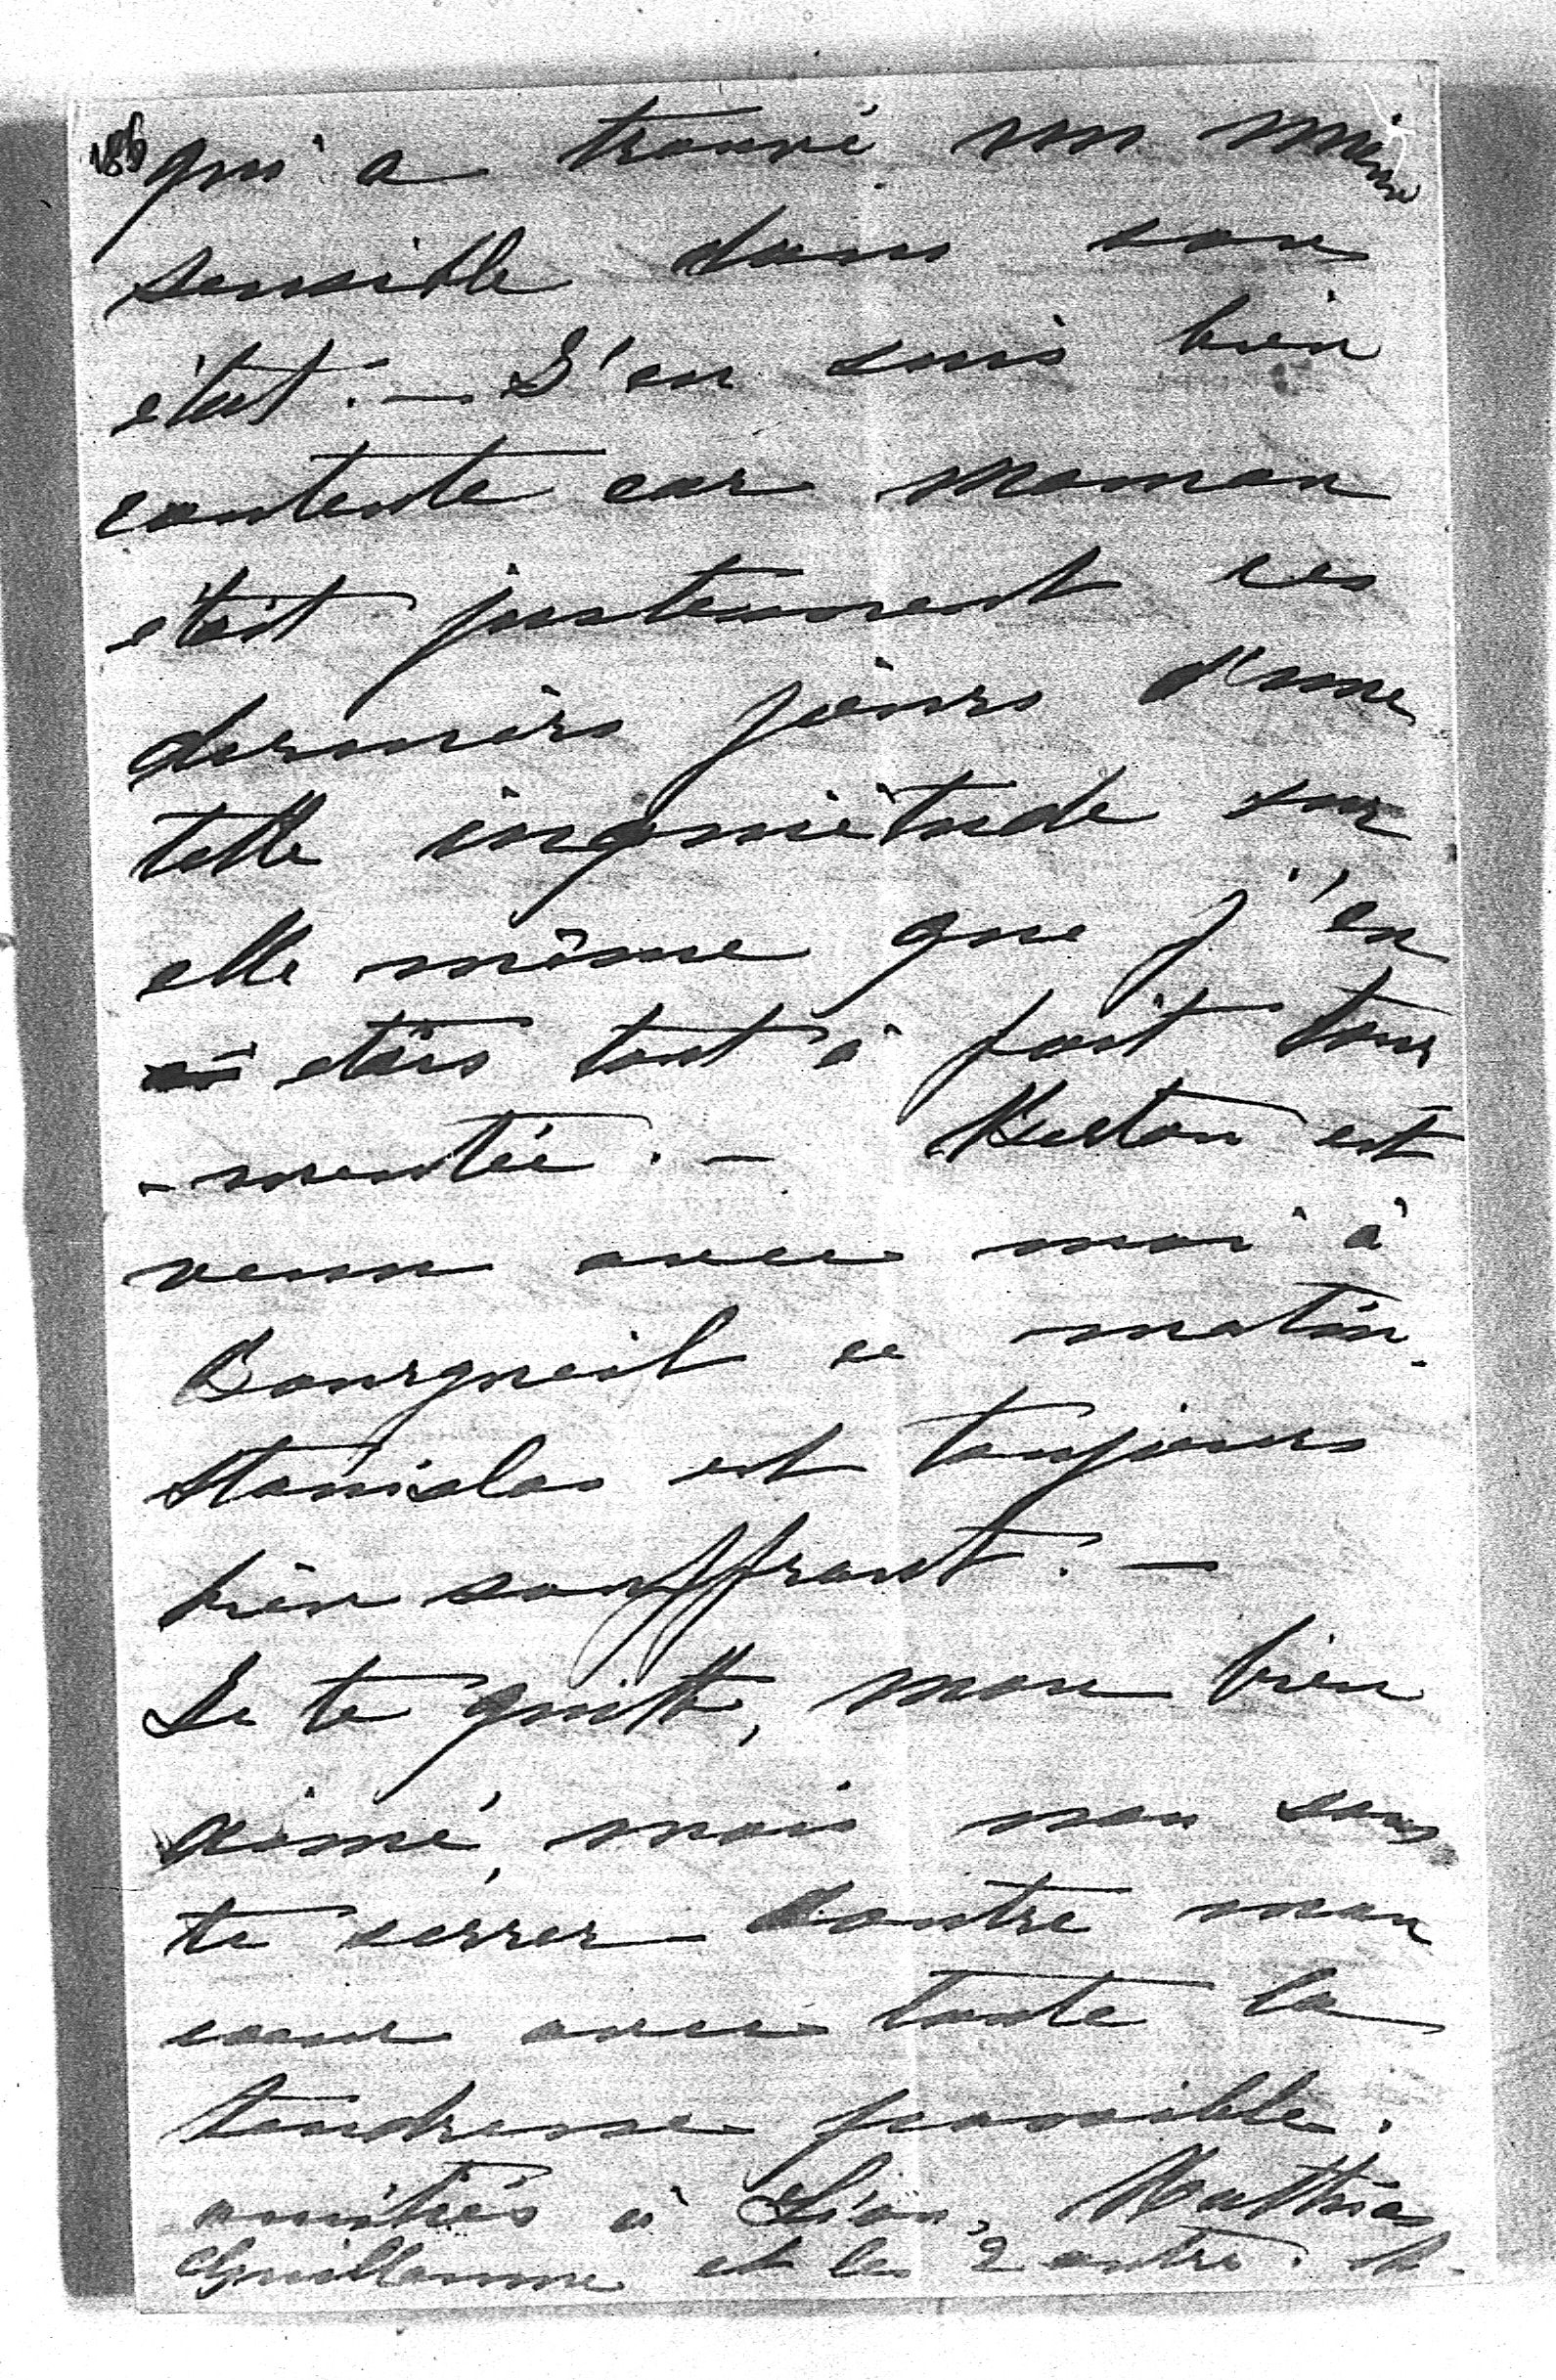 qui a trouvé un mieux
sensible dans son
état. — J'en suis bien
contente car maman
était justement ces
derniers jours d'une
telle inquiétude sur
elle même que j'en
étais tout à fait tour
-mentée. — Keston est
venu avec moi à
Bourgueil ce matin.
Stanislas est toujours
bien souffrant. —
Je te quitte, mon bien
aimé, mais non sans
te serrer contre mon
cœur avec toute la
tendresse possible.
amitiés à Léon, Mathias
Guillaume et les 2 autres.